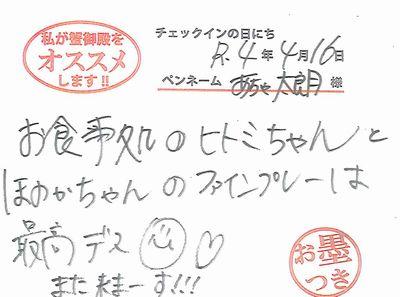 私が蟹御殿を
オススメ
します!!
チェックインの日にち
R.4年4月16日
ペンネーム あちゃ太郎 様
お食事処のヒトミちゃんと
ほのかちゃんのファインプレーは
最高デス
また来まーす!!!
お墨
つき